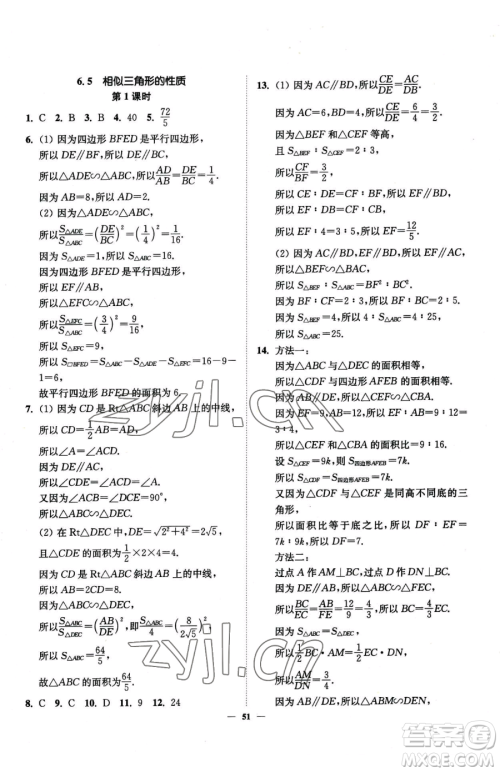 6.5 相似三角形的性质
第1课时
1. C 2. B 3. B 4. 40 5. 72/5
6. (1) 因为四边形 BFED 是平行四边形,
所以 DE∥BF, 所以 DE∥BC,
所以△ADE∽△ABC, 所以 AD/AB=DE/BC=1/4.
因为 AB=8, 所以 AD=2.
(2) 因为△ADE∽△ABC,
所以 S△ADE/S△ABC=(DE/BC)²=(1/4)²=1/16.
因为 S△ADE=1, 所以 S△ABC=16.
因为四边形 BFED 是平行四边形,
所以 EF∥AB,
所以△EFC∽△ABC,
所以 S△EFC/S△ABC=(3/4)²=9/16,
所以 S△EFC=9,
所以 S□BFED=S△ABC-S△EFC-S△ADE=16-9-
1=6,
故平行四边形 BFED 的面积为 6.
7. (1) 因为 CD 是 Rt△ABC 斜边 AB 上的中线,
所以 CD=1/2AB=AD,
所以∠A=∠ACD.
因为 DE∥AC, 所以∠CDE=∠ACD=∠A.
又因为∠ACB=∠DCE=90°,
所以△ABC∽△DEC.
(2) 在 Rt△DEC 中, DE=√(2²+4²)=2√5,
且△CDE 的面积为 1/2×2×4=4.
因为 CD 是 Rt△ABC 斜边 AB 上的中线,
所以 AB=2CD=8.
所以 S△ABC/S△DEC=(AB/DE)², 即 S△ABC/4=(8/2√5)²,
所以 S△ABC=64/5,
故△ABC 的面积为 64/5.
8. C 9. C 10. D 11. 9 12. 24
13. (1) 因为 AC∥BD, 所以 CE/DE=AC/DB.
因为 AC=6, BD=4, 所以 CE/DE=6/4=3/2.
因为△BEF 和△CEF 等高,
且 S△BEF∶S△CEF=2∶3,
所以 CF/BF=3/2,
所以 CE/DE=CF/BF, 所以 EF∥BD,
所以△CEF∽△CDB, 所以 EF∶BD=CF∶CB,
所以 EF∶4=3∶5, 所以 EF=12/5.
(2) 因为 AC∥BD, EF∥BD, 所以 EF∥AC,
所以△BEF∽△ABC,
所以 S△BEF∶S△ABC=BF²∶BC².
因为 BF∶CF=2∶3, 所以 BF∶BC=2∶5.
因为 S△BEF=4, 所以 4∶S△ABC=2²∶5²,
所以 S△ABC=25.
14. 方法一:
因为△ABC 与△DEC 的面积相等,
所以△CDF 与四边形 AFEB 的面积相等.
因为 AB∥DE, 所以△CEF∽△CBA.
因为 EF=9, AB=12, 所以 EF∶AB=9∶12=
3∶4,
所以△CEF 和△CBA 的面积比=9∶16.
设 S△CEF=9k, 则 S四边形AFEB=7k.
所以 S△CDF=S四边形AFEB=7k.
因为△CDF 与△CEF 是同高不同底的三
角形,
所以面积比等于底之比, 所以 DF∶EF=
7k∶9k, 所以 DF=7.
方法二:
过点 A 作 AM⊥BC, 过点 D 作 DN⊥BC.
因为 AB∥DE, 所以△CEF∽△CBA,
所以 BC/EC=AB/FE=12/9=4/3, 所以 BC=4/3EC.
因为 S△ABC=S△DEC,
所以 1/2BC·AM=1/2EC·DN,
所以 4/3AM=DN.
因为 AB∥DE, 所以∠B=∠DEC,
所以△ABM∽△DEN,
51
zyjl.cn
zyjl.cn